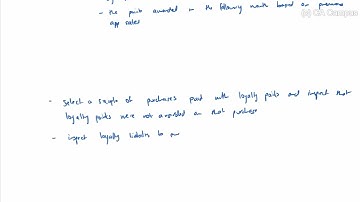 (c) CA Campus
- the points awarded in the following month based on previous
app sales
- Select a sample of purchases paid with loyalty points and inspect that
loyalty points were not awarded on that purchase
- inspect loyalty liabilities to